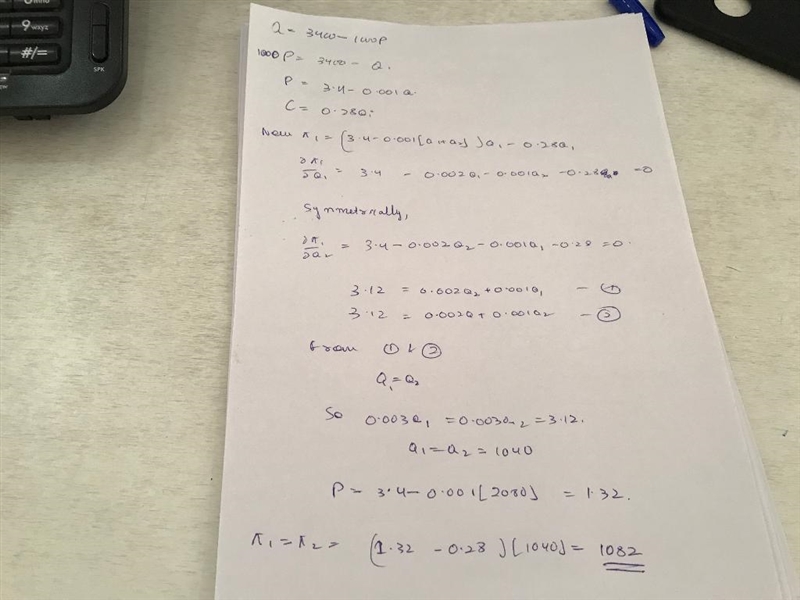 9 wxyz
#/=
SPK
Q = 3400 - 1000P
1000 P = 3400 - Q.
P = 3.4 - 0.001Q.
C = 0.28Qi
Now π1 = (3.4 - 0.001[Q1+Q2])Q1 - 0.28Q1
∂π1/∂Q1 = 3.4 - 0.002Q1 - 0.001Q2 - 0.28 = 0
Symmetrally,
∂π1/∂Q2 = 3.4 - 0.002Q2 - 0.001Q1 - 0.28 = 0.
3.12 = 0.002Q2 + 0.001Q1 - ①
3.12 = 0.002Q + 0.001Q2 - ②
from ① & ②
Q1 = Q2
So 0.003Q1 = 0.003Q2 = 3.12.
Q1 = Q2 = 1040
P = 3.4 - 0.001[2080] = 1.32.
π1 = π2 = (1.32 - 0.28)[1040] = 1082